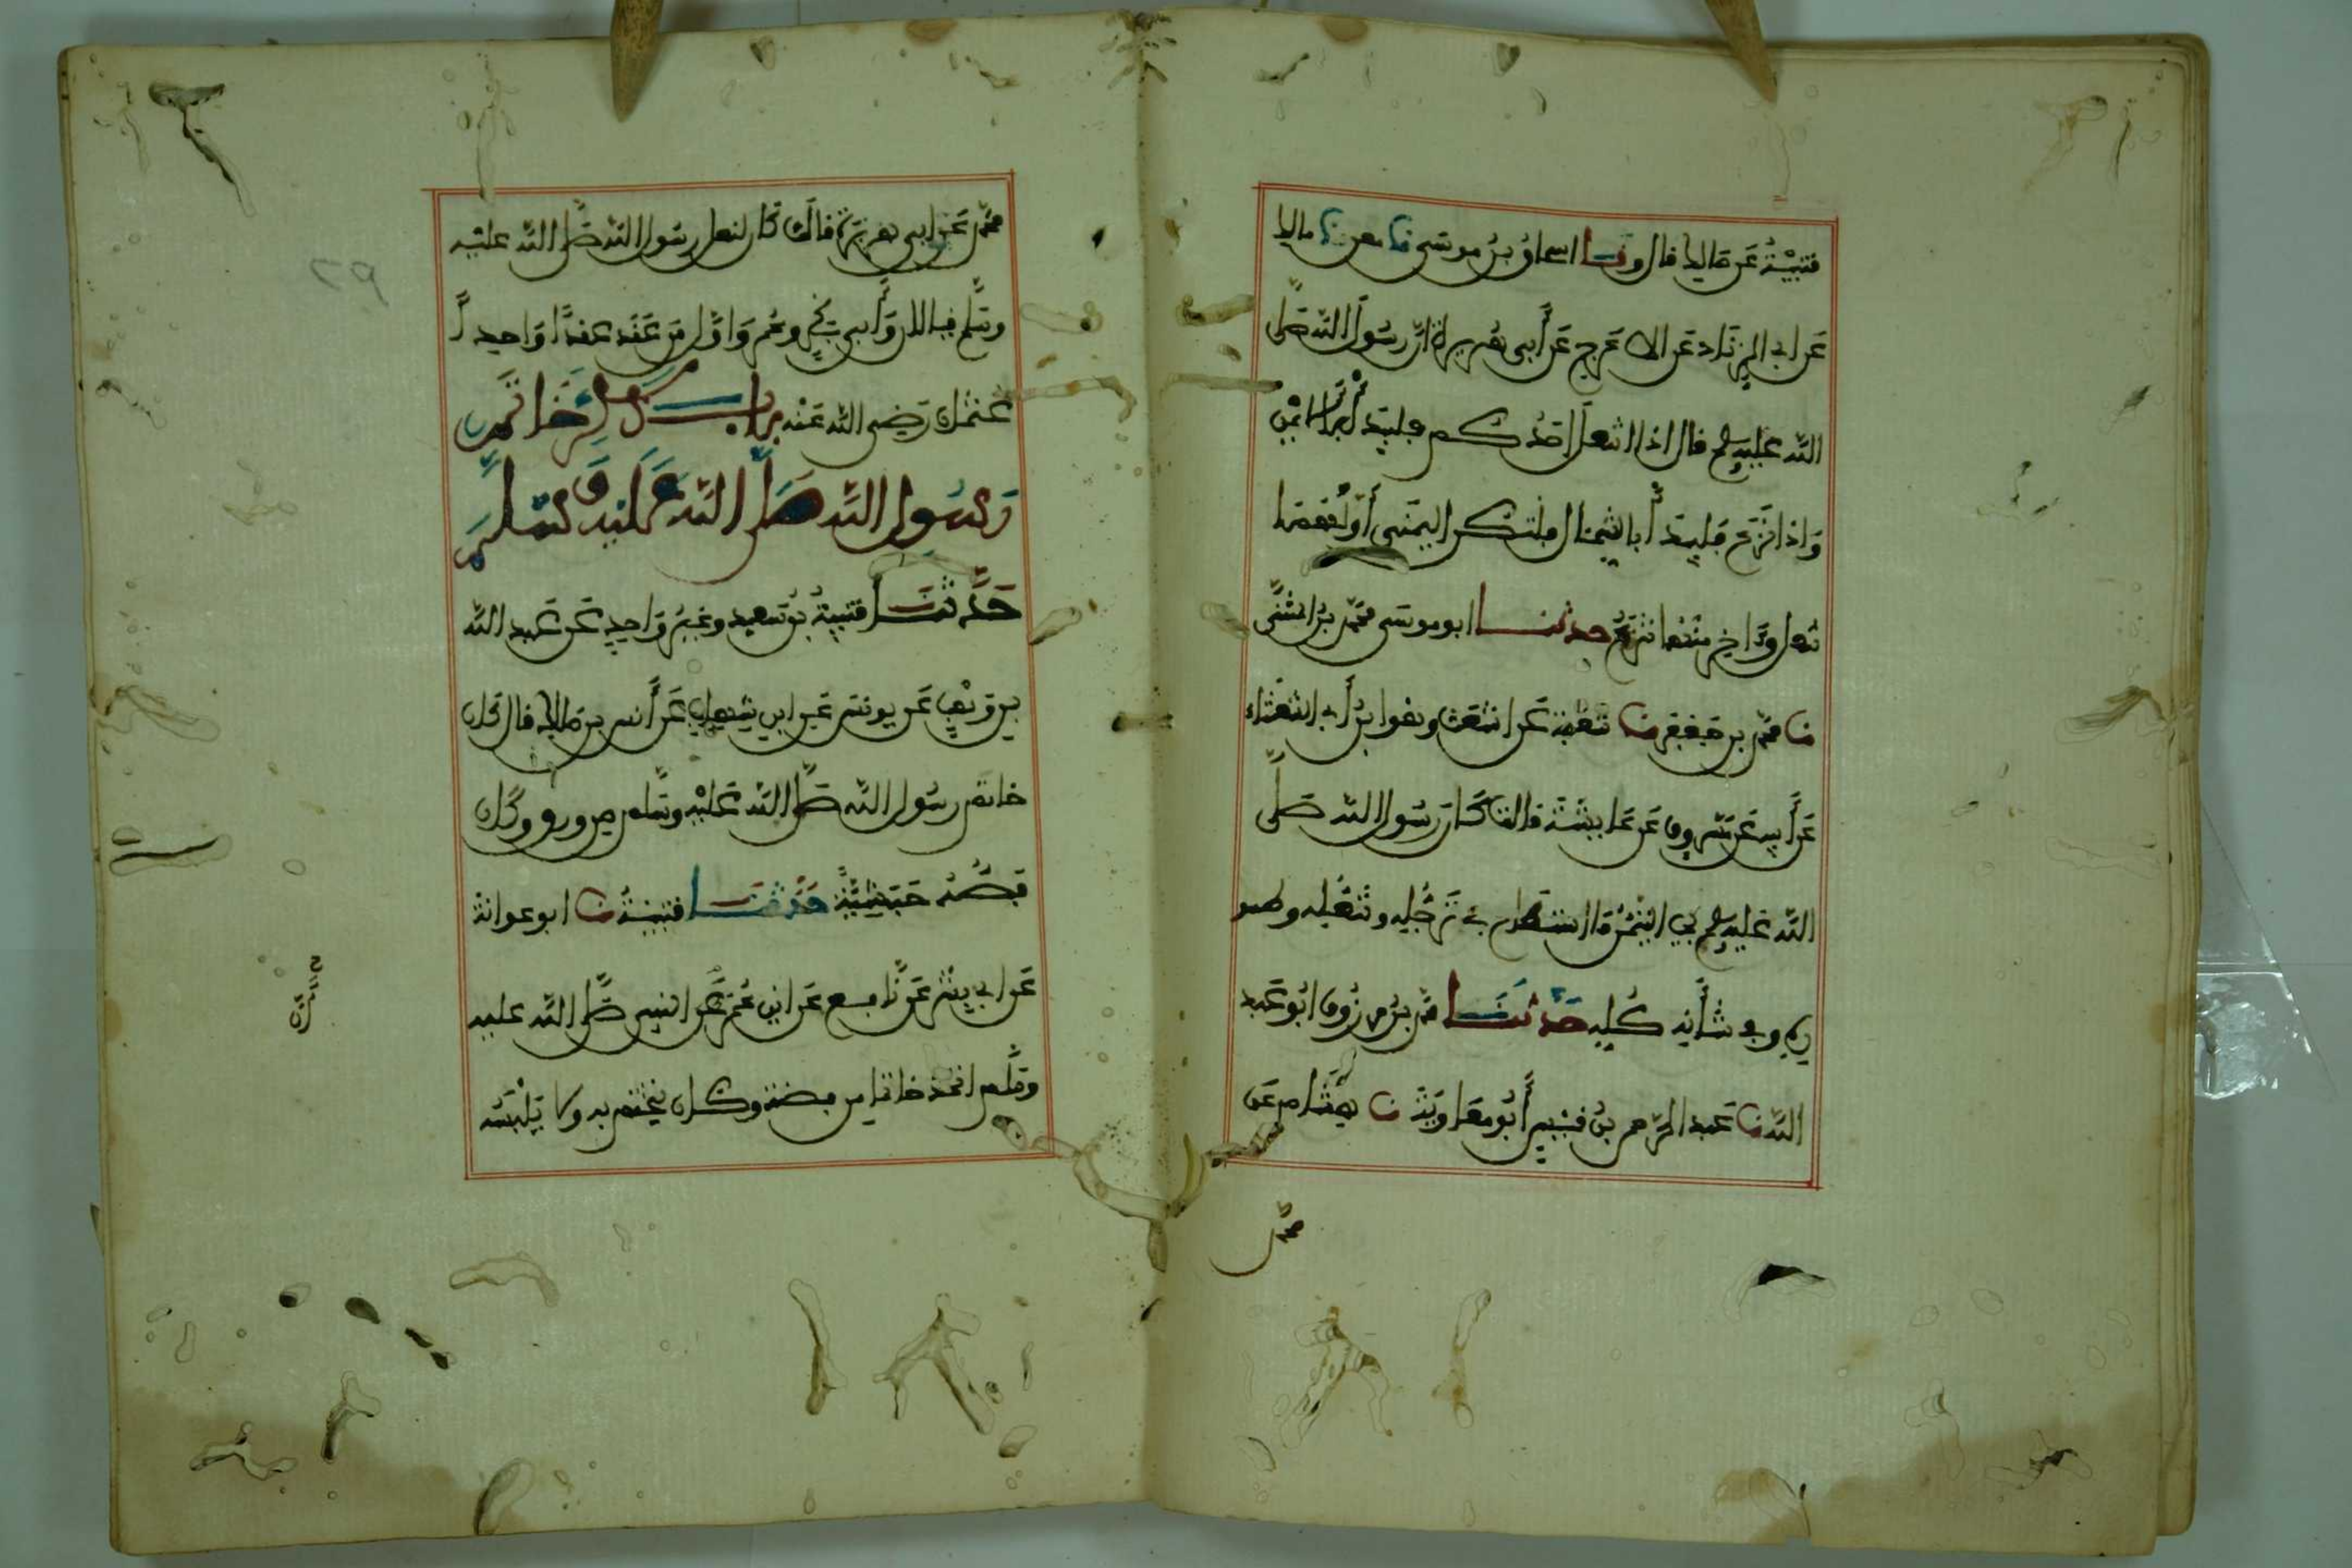 قتيبة عن مالك قال وثنا اسحاق بن موسى نا معن نا مالك
عن ابى الزناد عن الاعرج عن أبى هريرة ان رسول الله صلى
الله عليه وسلم قال اذا انتعل احدكم فليبدأ باليمين
واذا نزع فليبدأ بالشمال فلتكن اليمنى أولهما
تنعل وءاخرهما تنزع حدثنا ابو موسى محمد بن المثنى
نا محمد بن جعفر نا شعبة عن اشعث وهو ابن أبى الشعثاء
عن أبيه عن مسروق عن عايشة قالت كان رسول الله صلى
الله عليه وسلم يحب التيمن ما استطاع في ترجله وتنعله وطهو
ره وفى شأنه كله حدثنا محمد بن مرزوق ابو عبد
الله نا عبد الرحمن بن قيس أبو معاوية نا هشام عن
محمد
محمد عن ابى هريرة قال كان لنعل رسول الله صلى الله عليه
وسلم قبالان وأبى بكر وعمر واول من عقد عقدا واحدا
عثمان رضى الله عنه باب ذكر خاتم
رسول الله صلى الله عليه وسلم
حدثنا قتيبة بن سعيد وغير واحد عن عبد الله
بن وهب عن يونس عن ابن شهاب عن أنس بن مالك قال كان
خاتم رسول الله صلى الله عليه وسلم من ورق وكان
فصه حبشيا حدثنا قتيبة نا ابو عوانة
عن ابى بشر عن نافع عن ابن عمر عن النبى صلى الله عليه
وسلم اتخذ خاتما من فضة وكان يختم به ولا يلبسه
٢٩